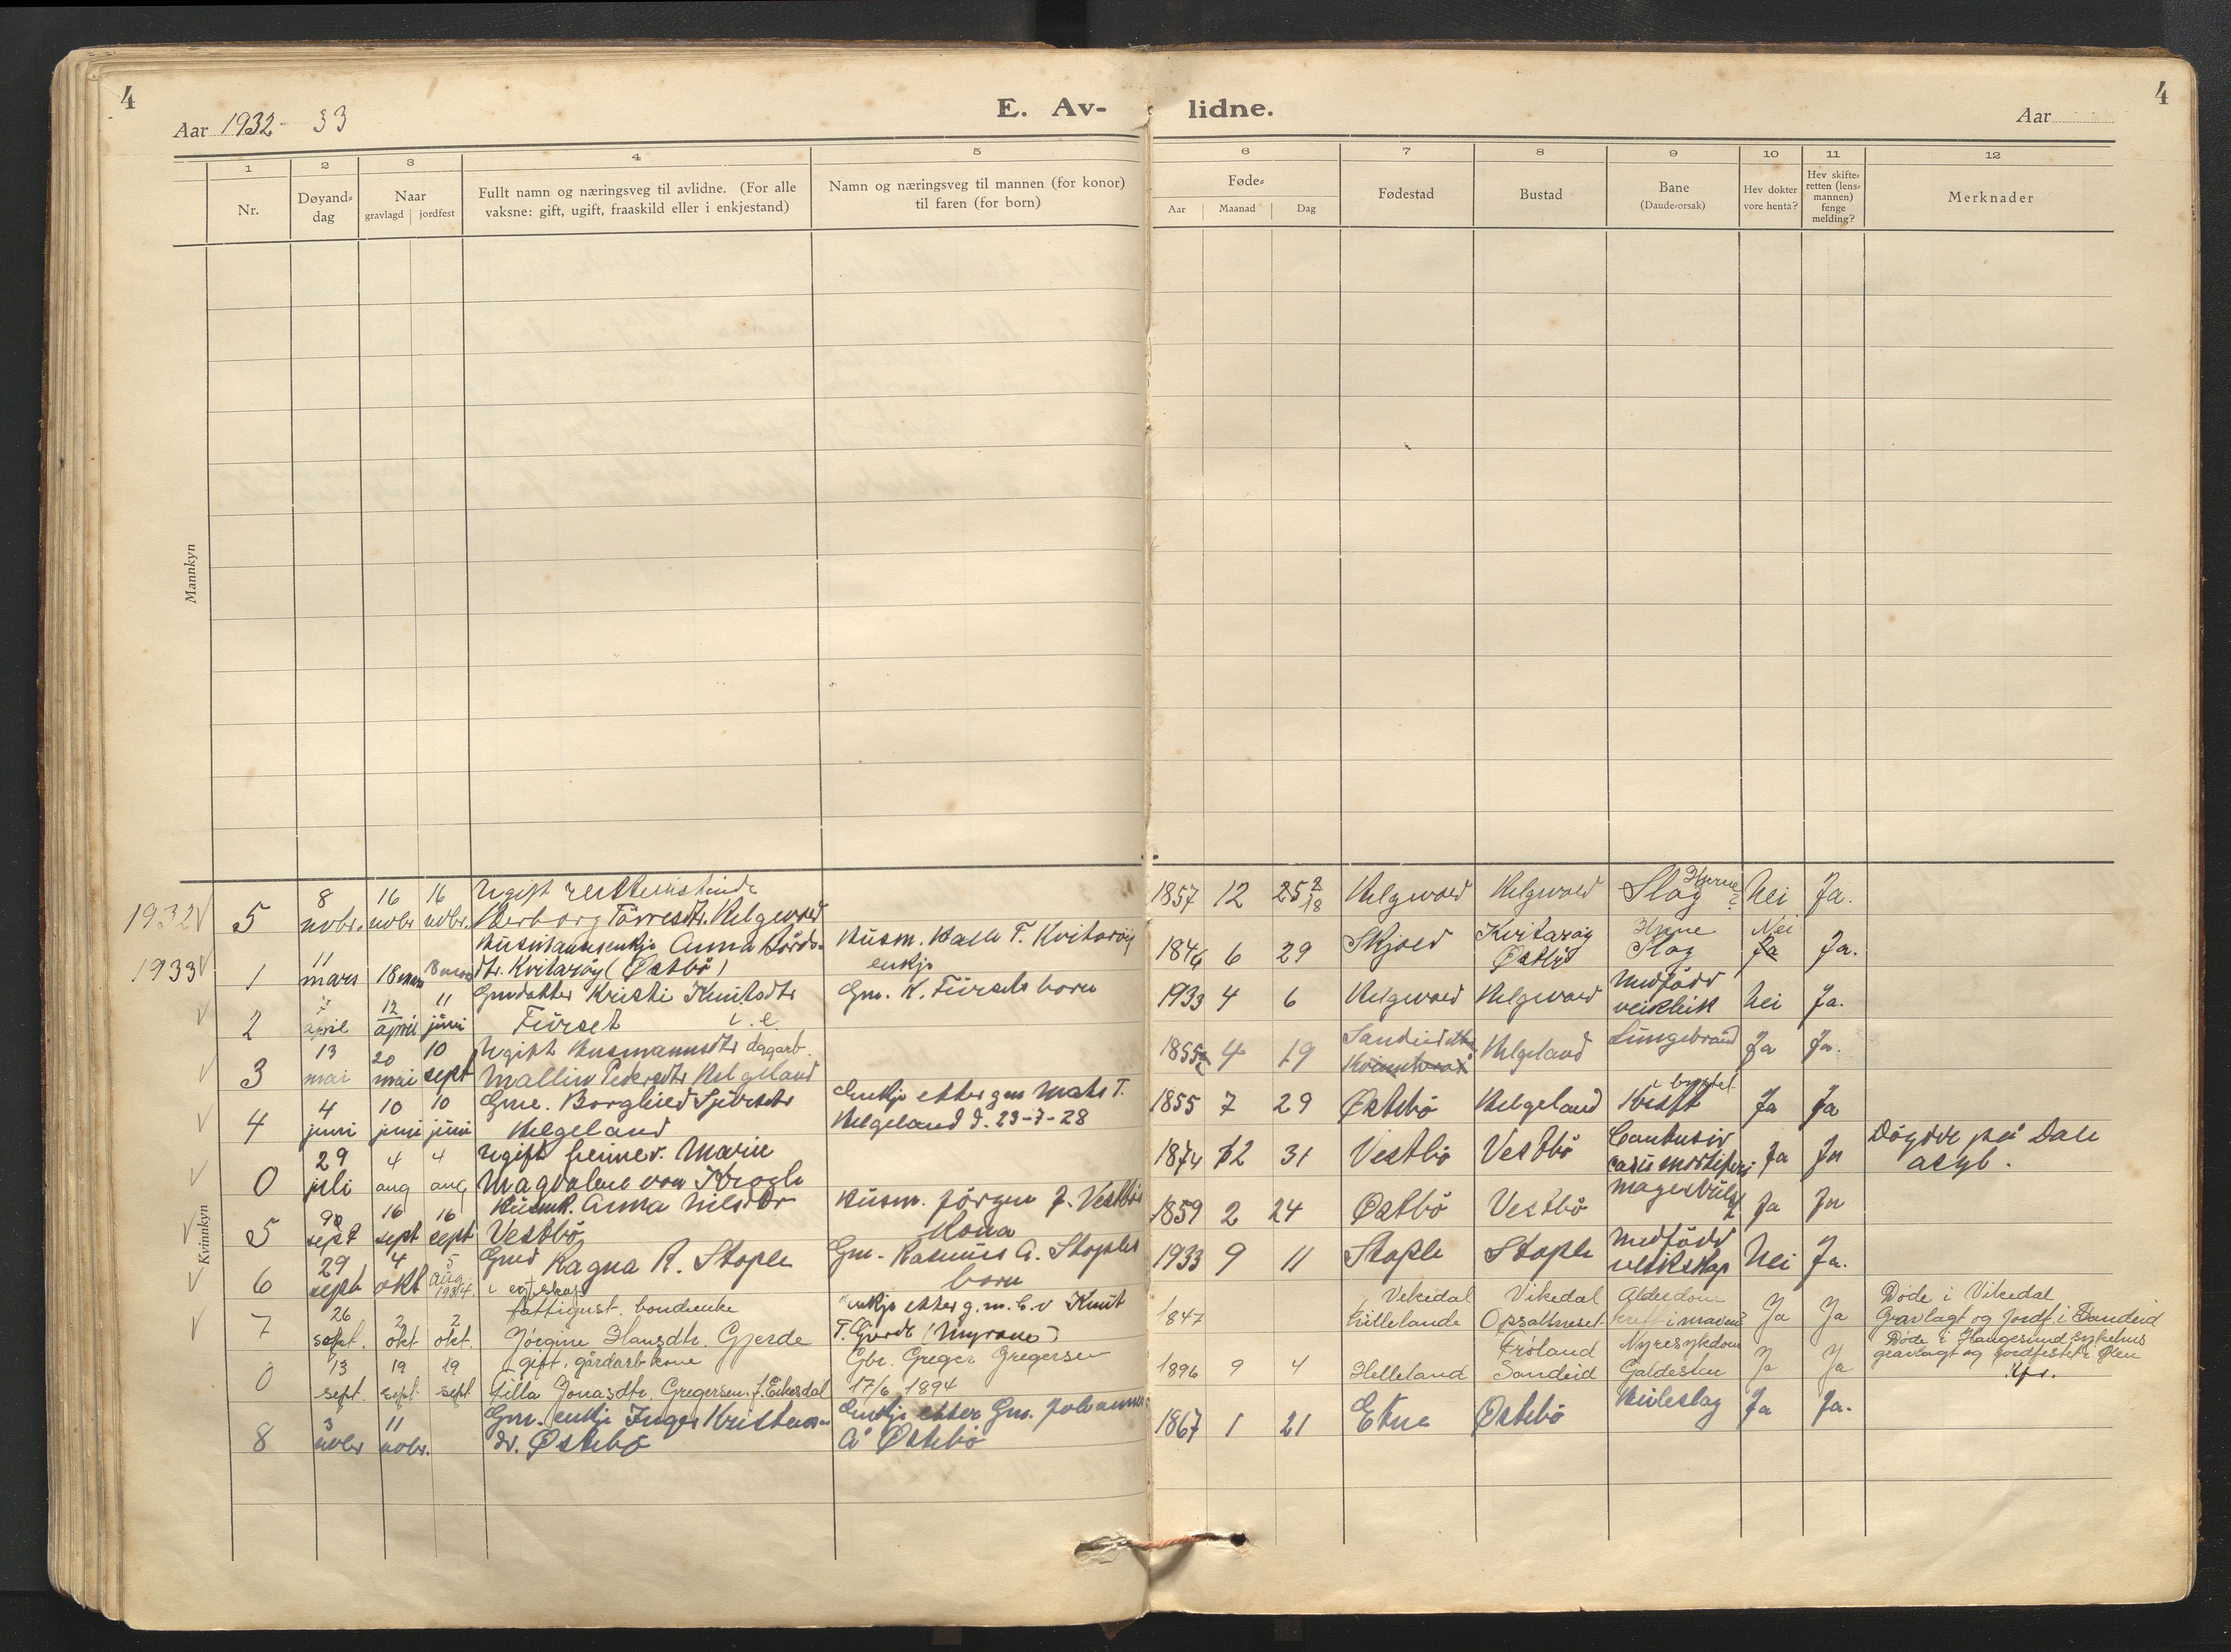 4
4
Aar 1932-33
E. Av-
lidne.
Aar
1
2
3
4
5
6
7
8
9
10
11
12
Nr.
Døyand-
dag
Naar
gravlagd | jordfest
Fullt namn og næringsveg til avlidne. (For alle
vaksne: gift, ugift, fraaskild eller i enkjestand)
Namn og næringsveg til mannen (for konor)
til faren (for born)
Føde-
Aar Maanad Dag
Fødestad
Bustad
Bane
(Daude-orsak)
Hev dokter
vore henta?
Hev skifte-
retten (lens-
mannen)
fenge
melding?
Merknader
Mannkyn
Kvinnkyn
1932 5 8 novbr. 16 novbr 16 novbr. Ugift
Torresdtr. Helgevold
1857 12 25 Helgevold Helgevold Slag Hjerne? Nei Ja.
1933 1 11 mars 18 mars 18 mars Husmannsenkje Anna Bårds-
dtr. Kvitarøy (Østbö) Husm. T. Kvitarøy
enkje
1846 6 29 Skjold Kvitarøy Østbö Hjerne Slag Nei Ja Ja.
2 april 12 april 11 juni Gmdatter Kristi Knutsdtr
Fürset i. e. Gm. K. Fürsets born
1933 4 6 Helgevold Helgevold Medfödd veikleik Nei Ja.
3 13 mai 20 mai 10 sept Ugift Husmannsdtr dagarb.
Mallin Pedersdtr Helgeland
1855 4 19 Sandeid Helgeland Lungebrand Ja Ja.
4 4 juni 10 juni 10 juni Gme. Borghild Sjursdtr
Helgeland Enkje etter gm Mats T.
Helgeland d. 23-7-28
1855 7 29 Østebö Helgeland Kreft i brystet Ja Ja
0 29 juli 4 aug 4 aug Ugift heimev. Marie
Magdalene von Krogh
1874 12 31 Vestbö Vestbö Ja Ja Döydde på Dale
asyl.
5 9 sept 16 sept 16 sept Husmk. Anna Nilsdtr
Vestbö Husm. Jörgen J. Vestbös
Kona
1859 2 24 Østbö Vestbö Ja Ja
6 29 sept 4 okt 5 aug 1934. Gmd Ragna R. Stople
i egteskap Gm. Rasmus A. Stoples
born
1933 9 11 Stople Stople Medfödd veikskap Nei Ja.
7 26 sept. 2 okt 2 okt. fattigunst. bondeenke
Jörgine Hansdtr. Gjerde Enkje etter g.m. Knut
T. Gjerde (Myrane)
1847 Vikedal Vikedal Alderdom
Opsalhuset kreft i maven? Ja Ja Døde i Vikedal
Gravlagt og Jordf. i Sandeid
0 13 sept. 19 sept. 19 sept gift. gårdarb.kone
Tilla Jonasdtr. Gregersen. f. Eikesdal Gbr. Greger Gregersen
17/6 1894
1896 9 4 Helleland Fröland Sandeid Nyresykdom Galdesten Ja Ja Døde i Haugesund sykehus
gravlagt og jordfestet i Ølen
8 3 novbr 11 novbr. Gm. enkje Inger Kristens-
dr. Østebö Enkje etter Gm. Johannes
A. Østebö
1867 1 21 Etne Østebö Ja Ja.